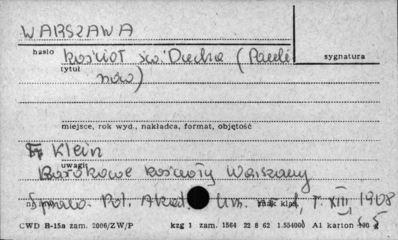 WARSZAWA
hasło kościół św. Ducha (Pauli
tytuł
sygnatura
nów)
miejsce, rok wyd., nakładca, format, objętość
Fr Klein
uwagi
Barokowe kościoły Warszawy
Spraw. Pol. Akad. Um. T. XIII, 1908
CWD B-15a zam. 2006/ZW/P kzg 1 zam. 1564 22 8 62 1.554000 A1 karton